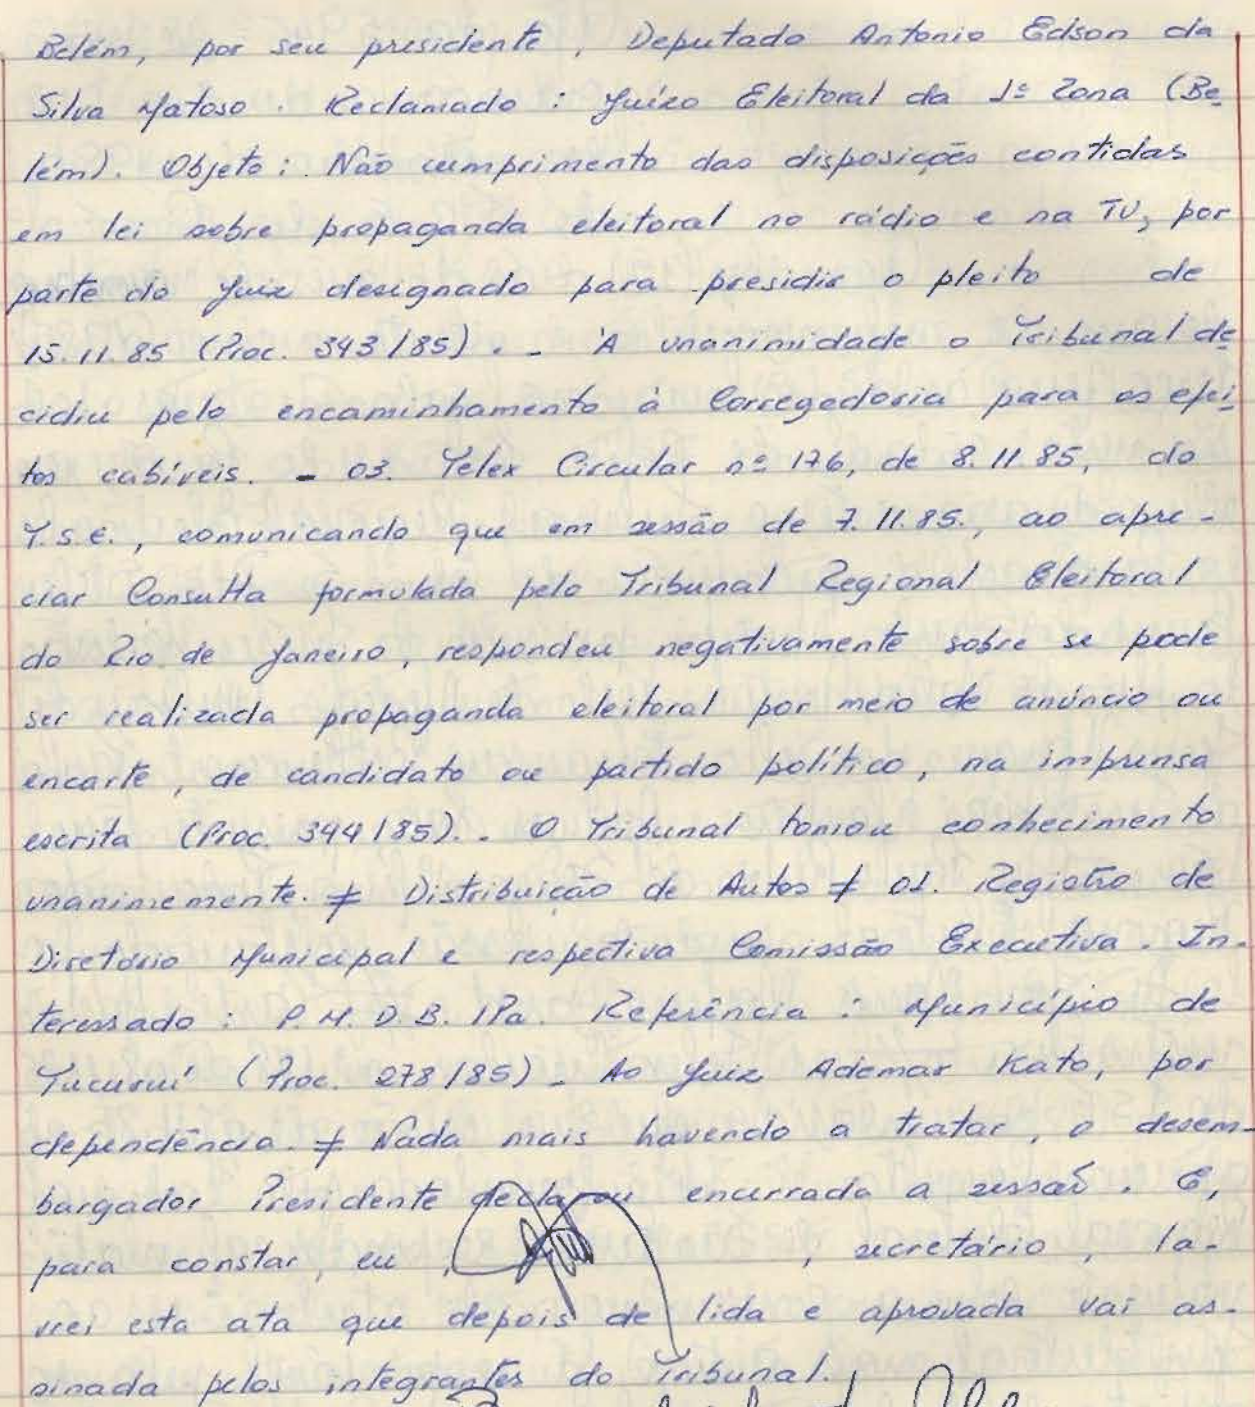 Belém, por seu presidente, Deputado Antonio Edson da
Silva Matoso. Reclamado: Juízo Eleitoral da 1ª Zona (Be
lém). Objeto: Não cumprimento das disposições contidas
em lei sobre propaganda eleitoral no rádio e na TV, por
parte do Juiz designado para presidir o pleito de
15.11.85 (Proc. 343/85). - À unanimidade o Tribunal de
cidiu pelo encaminhamento à Corregedoria para os efei
tos cabíveis. - 03. Telex Circular nº 176, de 8.11.85, do
T.S.E., comunicando que em sessão de 7.11.85., ao apre-
ciar Consulta formulada pelo Tribunal Regional Eleitoral
do Rio de Janeiro, respondeu negativamente sobre se pode
ser realizada propaganda eleitoral por meio de anúncio ou
encarte, de candidato ou partido político, na imprensa
escrita (Proc. 344/85).. O Tribunal tomou conhecimento
unanimemente. ≠ Distribuição de Autos ≠ 01. Registro de
Diretório Municipal e respectiva Comissão Executiva. In-
teressado: P.M.D.B./Pa. Referência: Município de
Tucuruí (Proc. 278/85) - Ao Juiz Ademar Kato, por
dependência. ≠ Nada mais havendo a tratar, o desem-
bargador Presidente declarou encerrada a sessão. E,
para constar, eu, , secretário, la-
vrei esta ata que depois de lida e aprovada vai as-
sinada pelos integrantes do Tribunal.